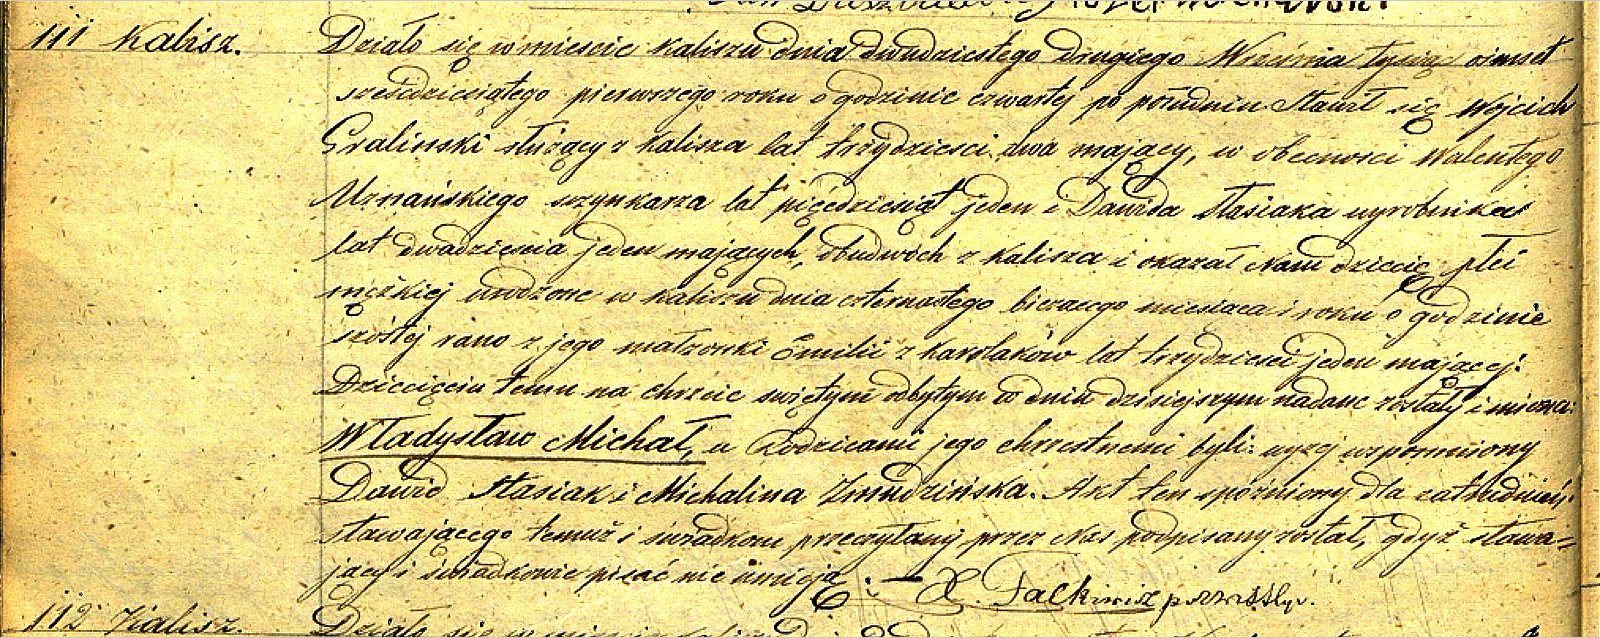 111 Kalisz. Działo się w mieście Kaliszu dnia dwudziestego drugiego Września tysiąc ośmset
sześćdziesiątego pierwszego roku o godzinie czwartej po południu Stawił się Wojciech
Gralinski służący z Kalisza lat trzydzieści dwa mający, w obecności Walentego
Uznańskiego szynkarza lat pięćdziesiąt jeden i Dawida Stasiaka wyrobnika
lat dwadzieścia jeden mających, obudwóch z Kalisza i okazał Nam dziecię płci
męzkiej urodzone w Kaliszu dnia czternastego bieżącego miesiąca i roku o godzinie
szóstej rano z jego małżonki Emilii z Karolaków lat trzydzieści jeden mającej.
Dziecięciu temu na chrzcie świętym odbytym w dniu dzisiejszym nadane zostały imiona:
Władysław Michał, a Rodzicami jego chrzestnemi byli: wyżej wspomniony
Dawid Stasiak i Michalina Zmudzińska. Akt ten spóźniony dla zatrudnień
stawającego temuż i świadkom przeczytany przez Nas podpisany został, gdyż stawa=
jący i świadkowie pisać nie umieją. — X.
112 Kalisz. Działo się w